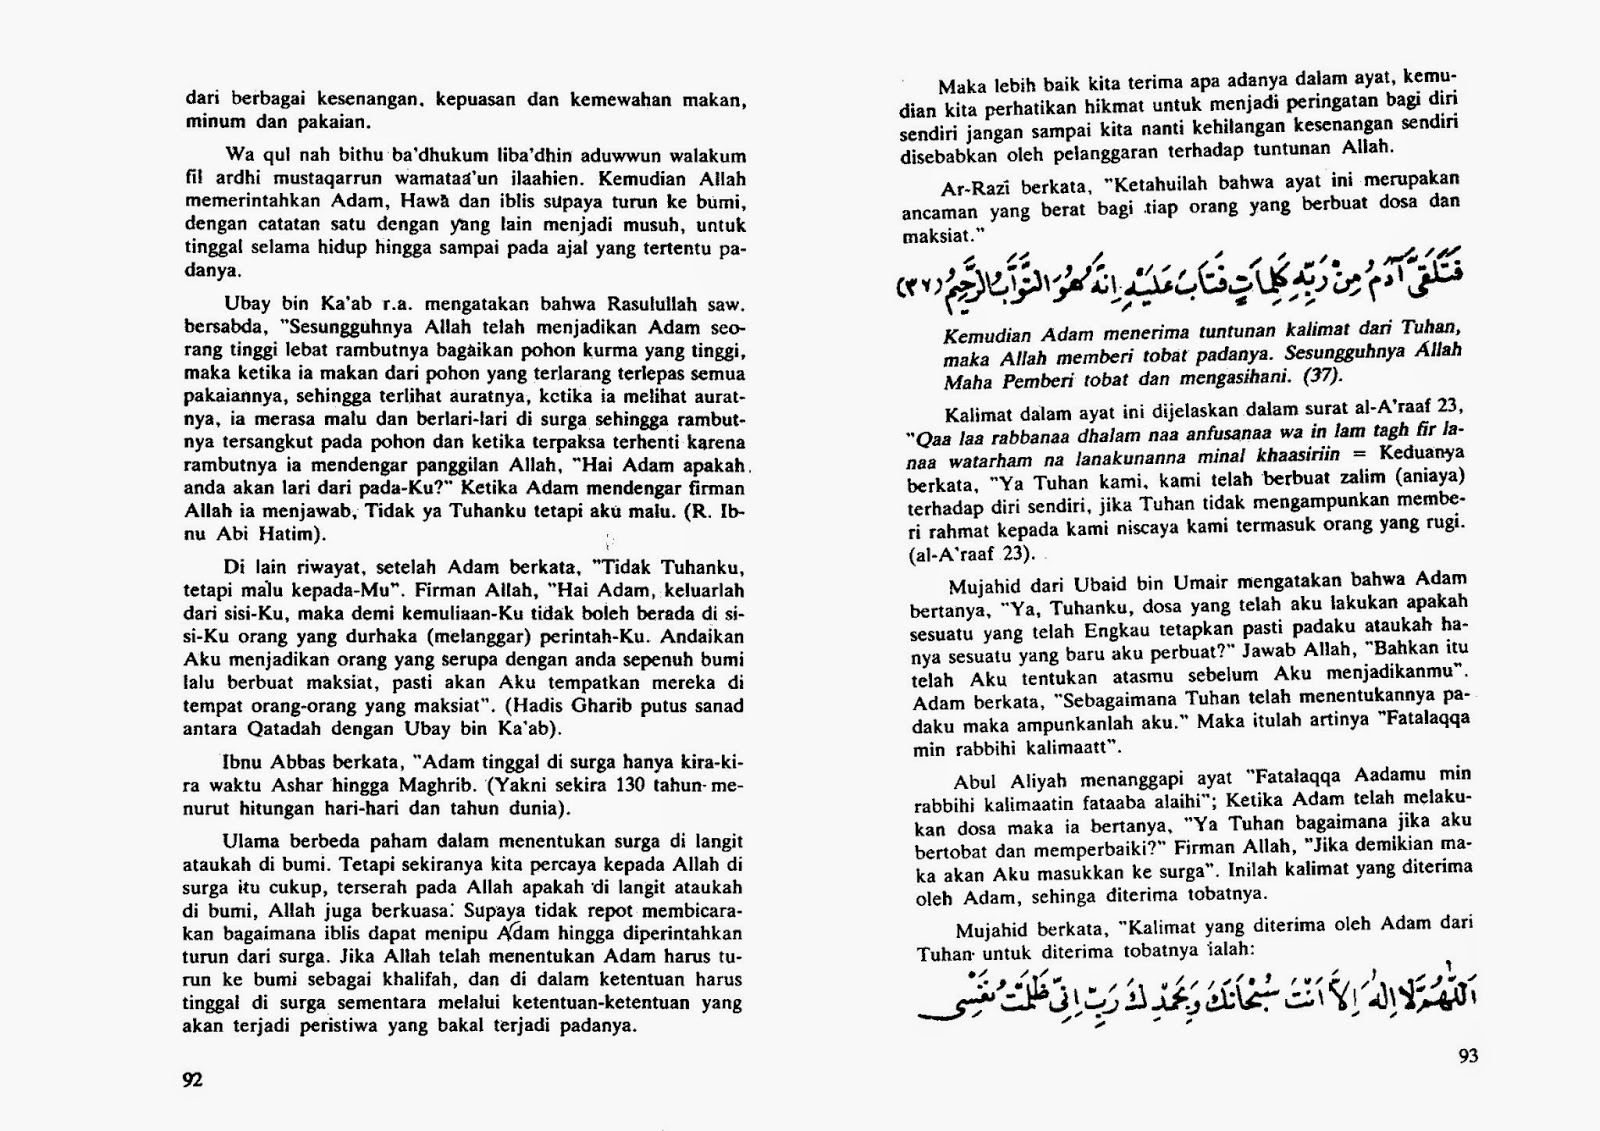 dari berbagai kesenangan, kepuasan dan kemewahan makan,
minum dan pakaian.
Wa qul nah bithu ba'dhukum liba'dhin aduwwun walakum
fil ardhi mustaqarrun wamataa'un ilaahien. Kemudian Allah
memerintahkan Adam, Hawa dan iblis supaya turun ke bumi,
dengan catatan satu dengan yang lain menjadi musuh, untuk
tinggal selama hidup hingga sampai pada ajal yang tertentu pa-
danya.
Ubay bin Ka'ab r.a. mengatakan bahwa Rasulullah saw.
bersabda, "Sesungguhnya Allah telah menjadikan Adam seo-
rang tinggi lebat rambutnya bagaikan pohon kurma yang tinggi,
maka ketika ia makan dari pohon yang terlarang terlepas semua
pakaiannya, sehingga terlihat auratnya, ketika ia melihat aurat-
nya, ia merasa malu dan berlari-lari di surga sehingga rambut-
nya tersangkut pada pohon dan ketika terpaksa terhenti karena
rambutnya ia mendengar panggilan Allah, "Hai Adam apakah
anda akan lari dari pada-Ku?" Ketika Adam mendengar firman
Allah ia menjawab, Tidak ya Tuhanku tetapi aku malu. (R. Ib-
nu Abi Hatim).
Di lain riwayat, setelah Adam berkata, "Tidak Tuhanku,
tetapi malu kepada-Mu". Firman Allah, "Hai Adam, keluarlah
dari sisi-Ku, maka demi kemuliaan-Ku tidak boleh berada di si-
si-Ku orang yang durhaka (melanggar) perintah-Ku. Andaikan
Aku menjadikan orang yang serupa dengan anda sepenuh bumi
lalu berbuat maksiat, pasti akan Aku tempatkan mereka di
tempat orang-orang yang maksiat". (Hadis Gharib putus sanad
antara Qatadah dengan Ubay bin Ka'ab).
Ibnu Abbas berkata, "Adam tinggal di surga hanya kira-ki-
ra waktu Ashar hingga Maghrib. (Yakni sekira 130 tahun me-
nurut hitungan hari-hari dan tahun dunia).
Ulama berbeda paham dalam menentukan surga di langit
ataukah di bumi. Tetapi sekiranya kita percaya kepada Allah di
surga itu cukup, terserah pada Allah apakah di langit ataukah
di bumi, Allah juga berkuasa. Supaya tidak repot membicara-
kan bagaimana iblis dapat menipu Adam hingga diperintahkan
turun dari surga. Jika Allah telah menentukan Adam harus tu-
run ke bumi sebagai khalifah, dan di dalam ketentuan harus
tinggal di surga sementara melalui ketentuan-ketentuan yang
akan terjadi peristiwa yang bakal terjadi padanya.
92
Maka lebih baik kita terima apa adanya dalam ayat, kemu-
dian kita perhatikan hikmat untuk menjadi peringatan bagi diri
sendiri jangan sampai kita nanti kehilangan kesenangan sendiri
disebabkan oleh pelanggaran terhadap tuntunan Allah.
Ar-Razi berkata, "Ketahuilah bahwa ayat ini merupakan
ancaman yang berat bagi tiap orang yang berbuat dosa dan
maksiat."
فَتَلَقَّىٰٓ اٰدَمُ مِنْ رَبِّهِ كَلِمَاتٍ فَتَابَ عَلَيْهِ اِنَّهُ هُوَ التَّوَّابُ الرَّحِيْمُ (٣٧)
Kemudian Adam menerima tuntunan kalimat dari Tuhan,
maka Allah memberi tobat padanya. Sesungguhnya Allah
Maha Pemberi tobat dan mengasihani. (37).
Kalimat dalam ayat ini dijelaskan dalam surat al-A'raaf 23,
"Qaa laa rabbanaa dhalam naa anfusanaa wa in lam tagh fir la-
naa watarham na lanakunanna minal khaasiriin = Keduanya
berkata, "Ya Tuhan kami, kami telah berbuat zalim (aniaya)
terhadap diri sendiri, jika Tuhan tidak mengampunkan membe-
ri rahmat kepada kami niscaya kami termasuk orang yang rugi.
(al-A'raaf 23).
Mujahid dari Ubaid bin Umair mengatakan bahwa Adam
bertanya, "Ya, Tuhanku, dosa yang telah aku lakukan apakah
sesuatu yang telah Engkau tetapkan pasti padaku ataukah ha-
nya sesuatu yang baru aku perbuat?" Jawab Allah, "Bahkan itu
telah Aku tentukan atasmu sebelum Aku menjadikanmu".
Adam berkata, "Sebagaimana Tuhan telah menentukannya pa-
daku maka ampunkanlah aku." Maka itulah artinya "Fatalaqqa
min rabbihi kalimaatt".
Abul Aliyah menanggapi ayat "Fatalaqqa Aadamu min
rabbihi kalimaatin fataaba alaihi"; Ketika Adam telah melaku-
kan dosa maka ia bertanya, "Ya Tuhan bagaimana jika aku
bertobat dan memperbaiki?" Firman Allah, "Jika demikian ma-
ka akan Aku masukkan ke surga". Inilah kalimat yang diterima
oleh Adam, sehinga diterima tobatnya.
Mujahid berkata, "Kalimat yang diterima oleh Adam dari
Tuhan untuk diterima tobatnya ialah:
اَللّٰهُمَّ لَا اِلٰهَ اِلَّا اَنْتَ سُبْحَانَكَ وَبِحَمْدِكَ رَبِّ اِنِّى ظَلَمْتُ نَفْسِى
93